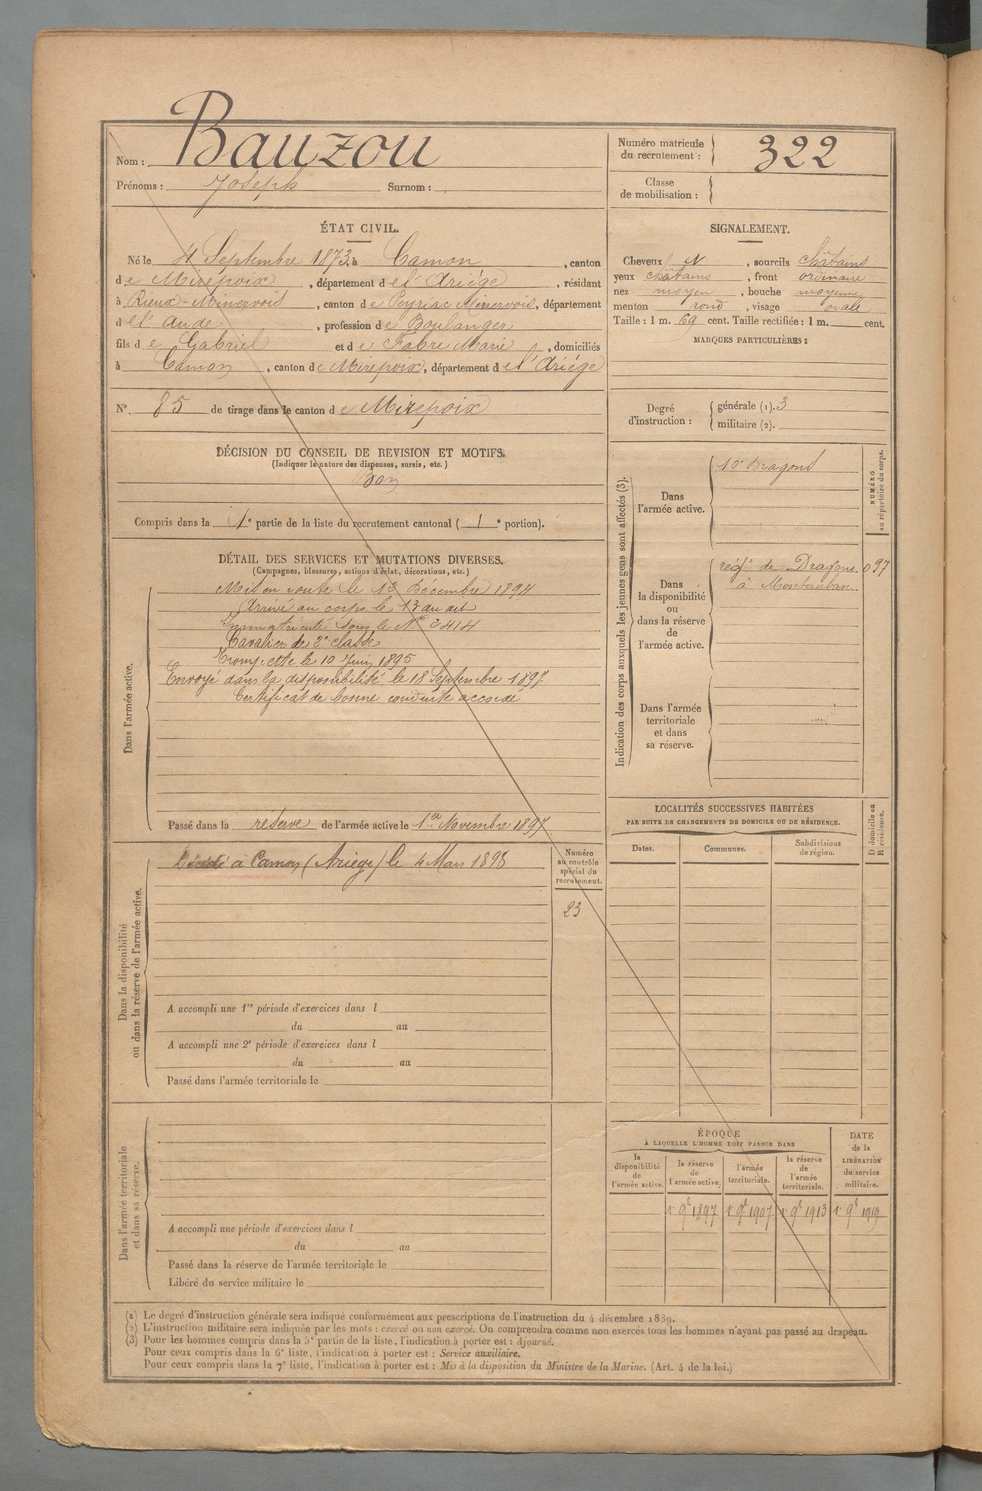 Nom : Bauzou
Prénoms : Joseph Surnom :
Numéro matricule du recrutement : 322
Classe de mobilisation :
ÉTAT CIVIL.
Né le 4 Septembre 1873, à Camon, canton
de Mirepoix, département de l'Ariége, résidant
à Rieux-Minervois, canton de Peyriac Minervois, département
de l'Aude, profession de Boulanger
fils de Gabriel et de Fabre Marie, domiciliés
à Camon, canton de Mirepoix, département de l'Ariége
N° 85 de tirage dans le canton de Mirepoix
SIGNALEMENT.
Cheveux N, sourcils châtains
yeux châtains, front ordinaire
nez moyen, bouche moyenne
menton rond, visage ovale
Taille : 1 m. 69 cent. Taille rectifiée : 1 m. cent.
MARQUES PARTICULIÈRES :
Degré d'instruction :
générale (1). 3
militaire (2).
DÉCISION DU CONSEIL DE REVISION ET MOTIFS.
(Indiquer la nature des dispenses, sursis, etc.)
Bon
Compris dans la 1e partie de la liste du recrutement cantonal ( 1e portion).
DÉTAIL DES SERVICES ET MUTATIONS DIVERSES.
(Campagnes, blessures, actions d'éclat, décorations, etc.)
Dans l'armée active.
Mis en route le 13 Décembre 1894
Arrivé au corps le 13 au dit
Immatriculé sous le N° 2414
Cavalier de 2e classe
Trompette le 10 Juin 1895
Envoyé dans la disponibilité le 18 Septembre 1897
Certificat de bonne conduite accordé
Passé dans la réserve de l'armée active le 1er Novembre 1897
Indication des corps auxquels les jeunes gens sont affectés (3).
NUMÉRO au répertoire du corps.
Dans l'armée active.
10e Dragons
Dans la disponibilité ou dans la réserve de l'armée active.
régt de Dragons 097
à Montauban
Dans l'armée territoriale et dans sa réserve.
LOCALITÉS SUCCESSIVES HABITÉES
PAR SUITE DE CHANGEMENTS DE DOMICILE OU DE RÉSIDENCE.
Dates. Communes. Subdivisions de région.
D domicile ou R résidence.
Dans la disponibilité ou dans la réserve de l'armée active.
Décédé à Camon (Ariège) le 4 Mars 1898
Numéro au contrôle spécial du recrutement.
23
A accompli une 1re période d'exercices dans l
du au
A accompli une 2e période d'exercices dans l
du au
Passé dans l'armée territoriale le
Dans l'armée territoriale et dans sa réserve.
A accompli une période d'exercices dans l
du au
Passé dans la réserve de l'armée territoriale le
Libéré du service militaire le
ÉPOQUE
À LAQUELLE L'HOMME DOIT PASSER DANS
la disponibilité de l'armée active.
la réserve de l'armée active.
l'armée territoriale.
la réserve de l'armée territoriale.
DATE de la LIBÉRATION du service militaire.
1897 1907 1913 1919
(1) Le degré d'instruction générale sera indiqué conformément aux prescriptions de l'instruction du 4 décembre 1889.
(2) L'instruction militaire sera indiquée par les mots : exercé ou non exercé. On comprendra comme non exercés tous les hommes n'ayant pas passé au drapeau.
(3) Pour les hommes compris dans la 5e partie de la liste, l'indication à porter est : Ajourné.
Pour ceux compris dans la 6e liste, l'indication à porter est : Service auxiliaire.
Pour ceux compris dans la 7e liste, l'indication à porter est : Mis à la disposition du Ministre de la Marine. (Art. 4 de la loi.)